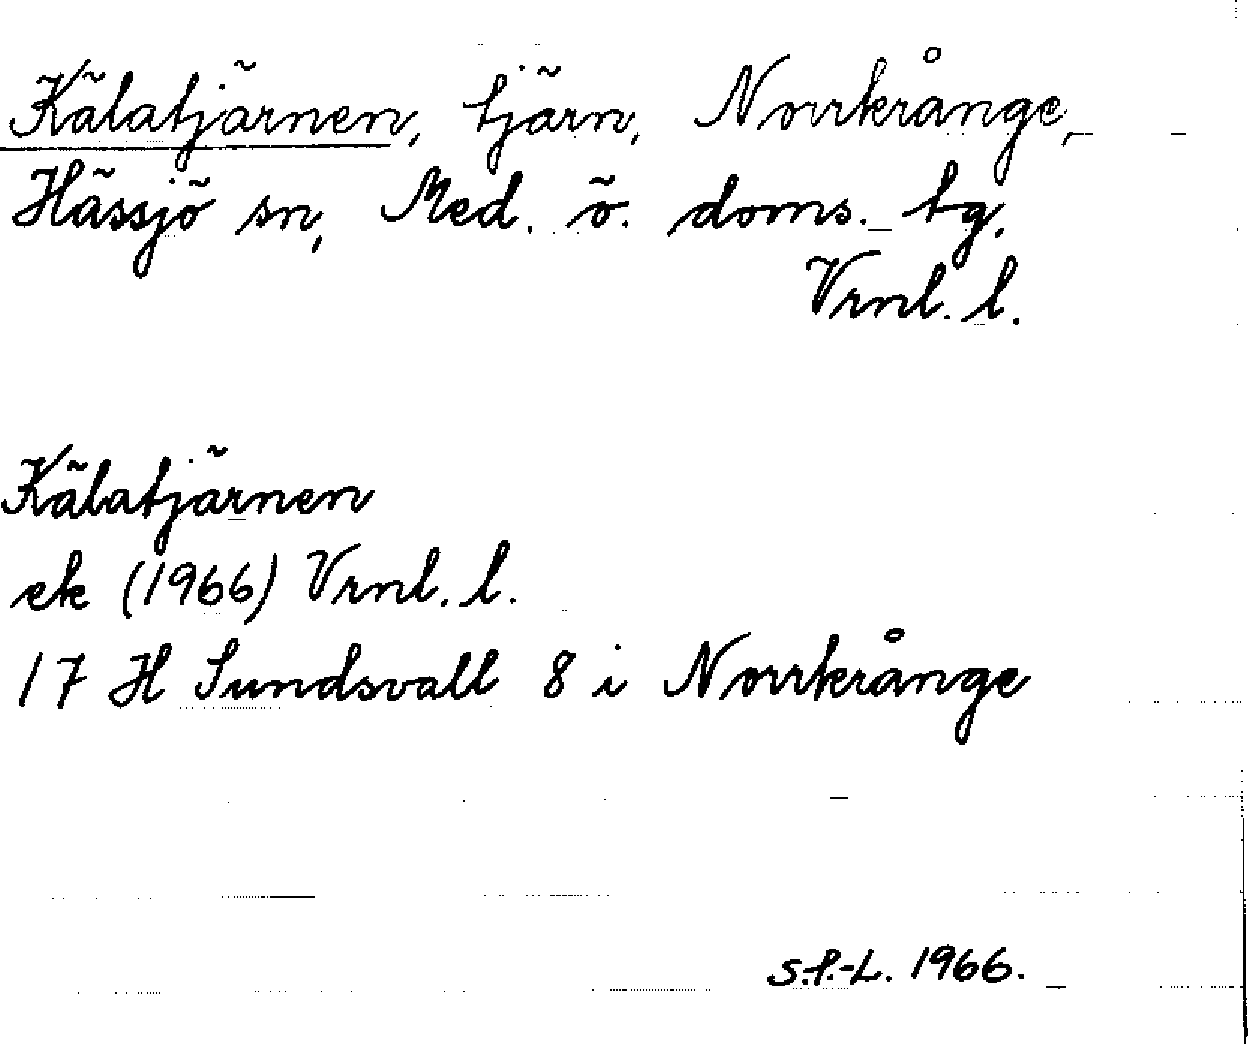 Kälatjärnen, tjärn, Norrkrånge,
Hässjö sn, Med. ö. doms. tg,
Vrnl. l.
Kälatjärnen
ek (1966) Vrnl. l.
17 H Sundsvall 8 i Norrkrånge
S.P.-L. 1966.